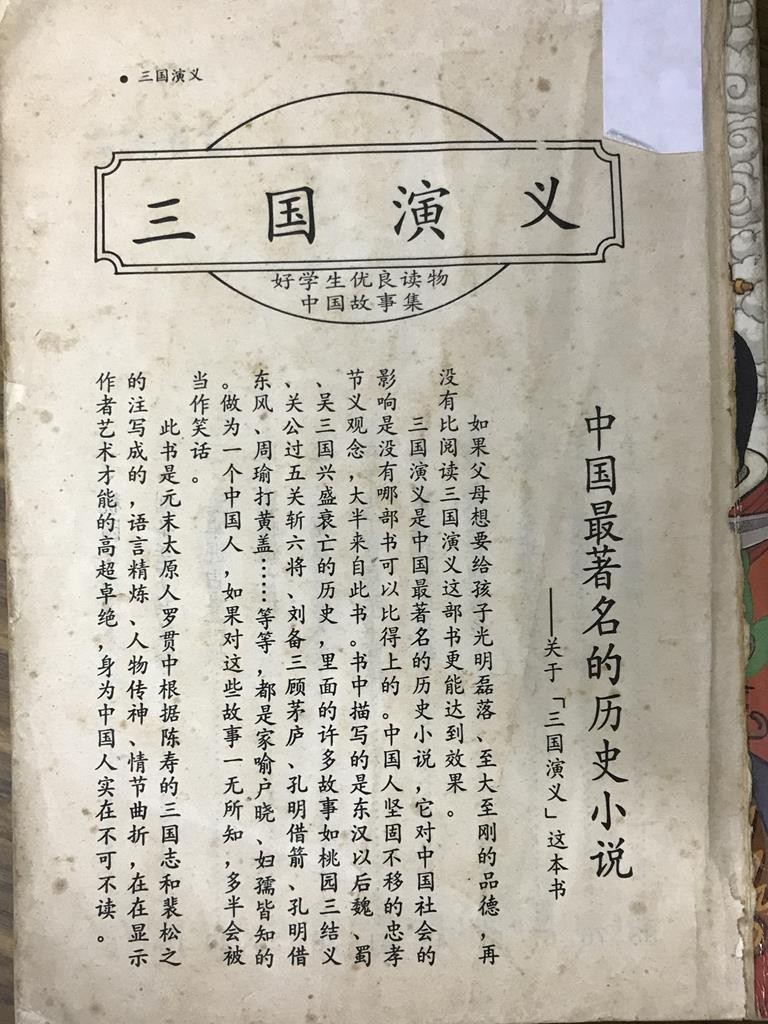 ● 三国演义
三国演义
好学生优良读物
中国故事集
中国最著名的历史小说
——关于「三国演义」这本书
如果父母想要给孩子光明磊落、至大至刚的品德,再
没有比阅读三国演义这部书更能达到效果。
三国演义是中国最著名的历史小说,它对中国社会的
影响是没有哪部书可以比得上的。中国人坚固不移的忠孝
节义观念,大半来自此书。书中描写的是东汉以后魏、蜀
、吴三国兴盛衰亡的历史,里面的许多故事如桃园三结义
、关公过五关斩六将、刘备三顾茅庐、孔明借箭、孔明借
东风、周瑜打黄盖……等等,都是家喻户晓、妇孺皆知的
。做为一个中国人,如果对这些故事一无所知,多半会被
当作笑话。
此书是元末太原人罗贯中根据陈寿的三国志和裴松之
的注写成的,语言精炼、人物传神、情节曲折,在在显示
作者艺术才能的高超卓绝,身为中国人实在不可不读。